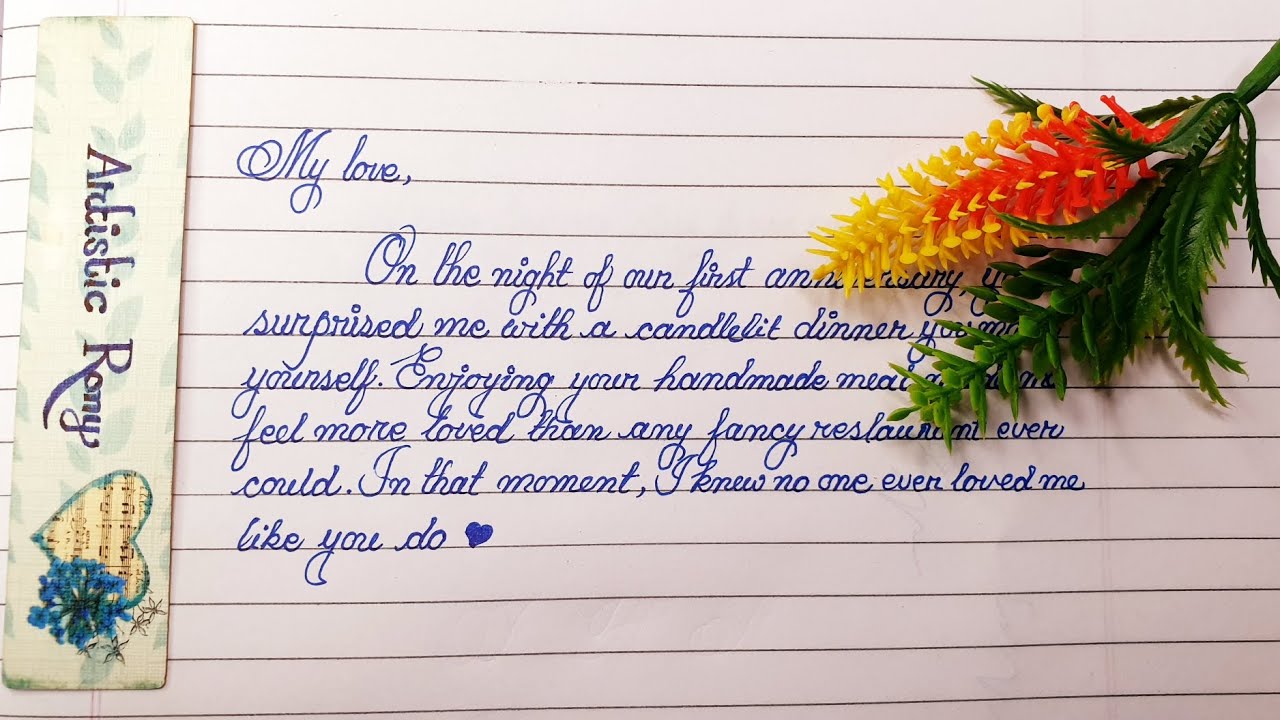 Artistic Romy
My love,
On the night of our first anniversary,
surprised me with a candlelit dinner you
yourself. Enjoying your handmade meal
feel more loved than any fancy restaurant ever
could. In that moment, I knew no one ever loved me
like you do ♥